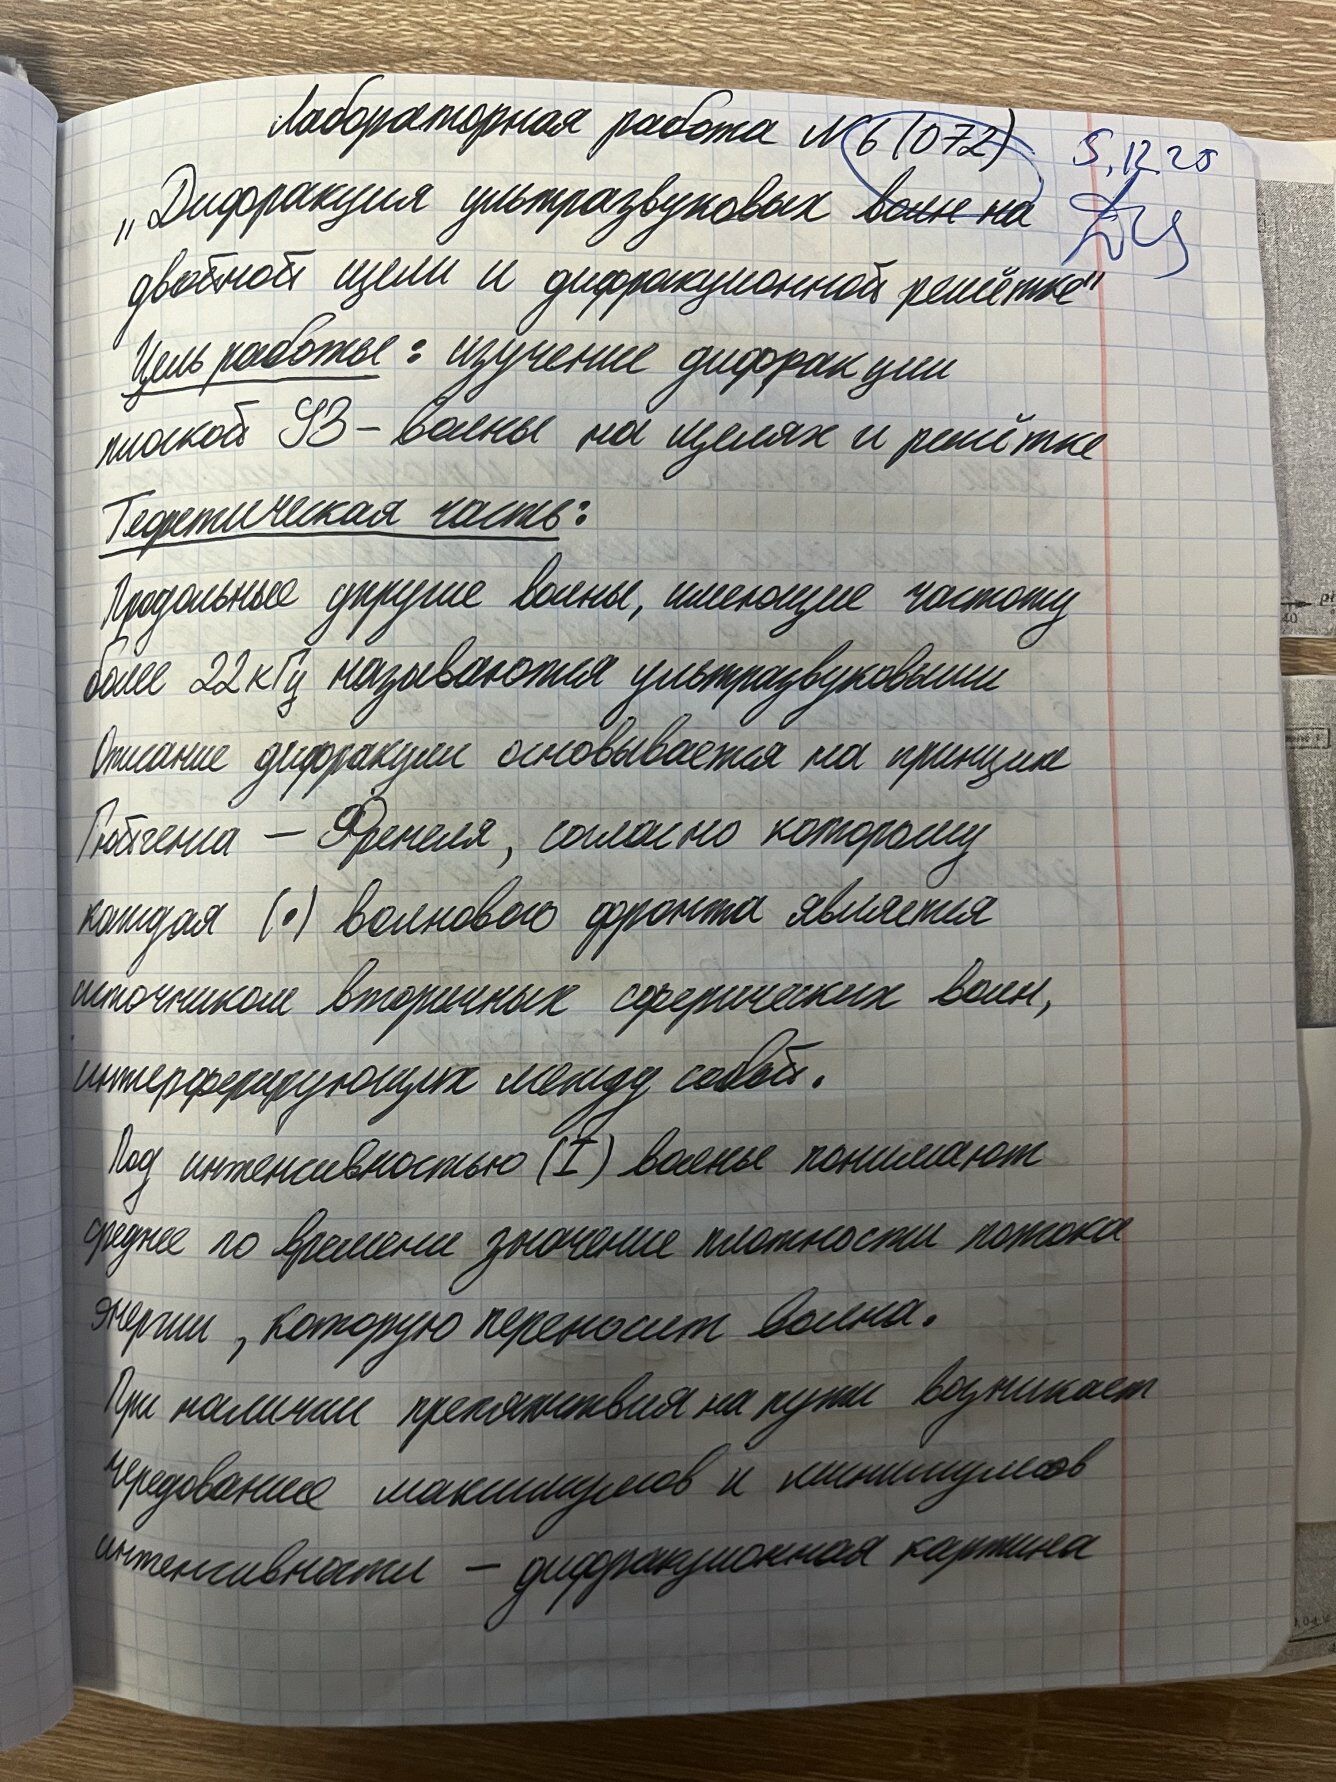 Лабораторная работа №6 (072)
5.12.25
„Дифракция ультразвуковых волн на
двойной щели и дифракционной решётке"
Цель работы: изучение дифракции
плоской УЗ-волны на щелях и решётке
Теоретическая часть:
Продольные упругие волны, имеющие частоту
более 22кГц называются ультразвуковыми
Описание дифракции основывается на принципе
Гюйгенса - Френеля, согласно которому
каждая (•) волнового фронта является
источником вторичных сферических волн,
интерферирующих между собой.
Под интенсивностью (I) волны понимают
среднее по времени значение плотности потока
энергии, которую переносит волна.
При наличии препятствия на пути возникает
чередование максимумов и минимумов
интенсивности - дифракционная картина